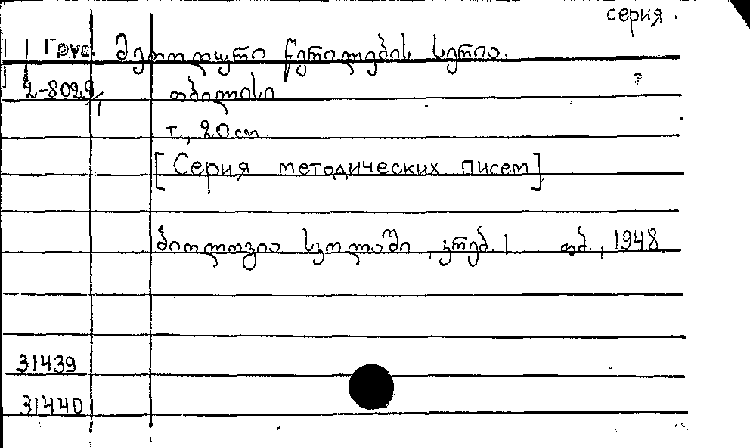 серия.
Груз. მეთოდური წერილების სერია.
2-8029/1 თბილისი
т., 20 см
[Серия методических писем]
ბიოლოგია სკოლაში, კრებ. 1 თბ., 1948
31439
31440